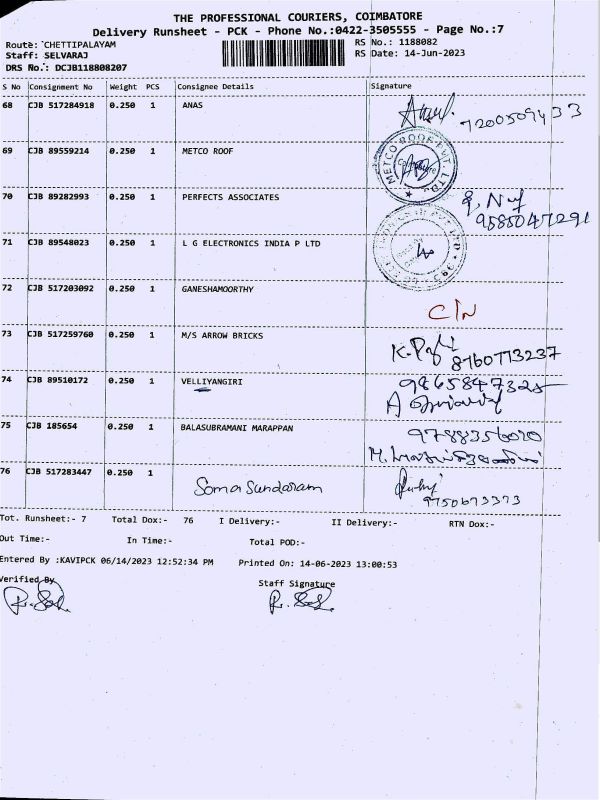 THE PROFESSIONAL COURIERS, COIMBATORE
Delivery Runsheet - PCK - Phone No.:0422-3505555 - Page No.:7
Route: CHETTIPALAYAM RS No.: 1188082
Staff: SELVARAJ RS Date: 14-Jun-2023
DRS No.: DCJB118808207
S No Consignment No Weight PCS Consignee Details Signature
68 CJB 517284918 0.250 1 ANAS 7200509433
69 CJB 89559214 0.250 1 METCO ROOF METCO ROOF PVT. LTD.
70 CJB 89282993 0.250 1 PERFECTS ASSOCIATES
9585047291
71 CJB 89548023 0.250 1 L G ELECTRONICS INDIA P LTD
72 CJB 517203092 0.250 1 GANESHAMOORTHY
C/N
73 CJB 517259760 0.250 1 M/S ARROW BRICKS
8760773237
74 CJB 89510172 0.250 1 VELLIYANGIRI 9865847325
75 CJB 185654 0.250 1 BALASUBRAMANI MARAPPAN
9788356020
76 CJB 517283447 0.250 1
Soma Sundaram
9750673373
Tot. Runsheet:- 7 Total Dox:- 76 I Delivery:- II Delivery:- RTN Dox:-
Out Time:- In Time:- Total POD:-
Entered By :KAVIPCK 06/14/2023 12:52:34 PM Printed On: 14-06-2023 13:00:53
Verified By Staff Signature